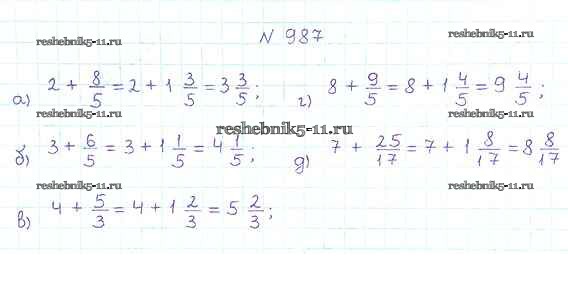 N 987
reshebnik5-11.ru reshebnik5-11.ru
а) 2 + 8/5 = 2 + 1 3/5 = 3 3/5; г) 8 + 9/5 = 8 + 1 4/5 = 9 4/5;
reshebnik5-11.ru
б) 3 + 6/5 = 3 + 1 1/5 = 4 1/5; д) 7 + 25/17 = 7 + 1 8/17 = 8 8/17
reshebnik5-11.ru reshebnik5-11.ru
в) 4 + 5/3 = 4 + 1 2/3 = 5 2/3;